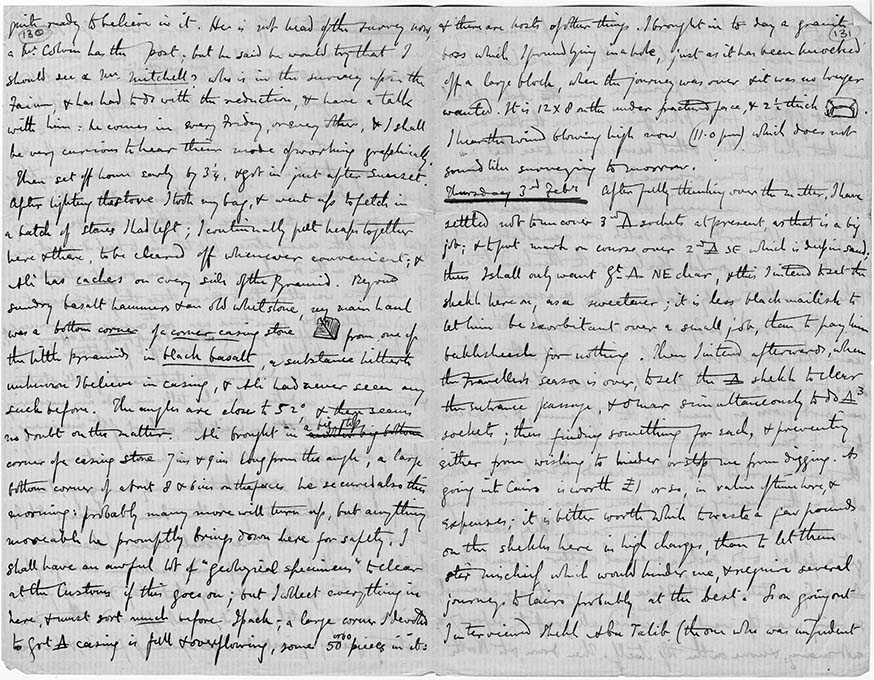 130
quite ready to believe in it. He is not head of the survey now,
a Mr Colvin has the post; but he said he would try that I
should see a Mr Mitchells who is in the survey up in the
Faium, & has had to do with the reduction, & have a talk
with him: he comes in every Friday, or every other, & I shall
be very curious to hear their mode of working graphically.
Then set off home early by 3¼, & got in just after Sunset.
After lighting the stove I took my bag, & went up to fetch in
a batch of stones I had left; I continually put heaps together
here & there, to be cleared off whenever convenient; &
Ali has caches on every side of the Pyramid. Beyond
sundry basalt hammers & an old whetstone, my main haul
was a bottom corner of a corner casing stone from one of
the little Pyramids in black basalt, a substance hitherto
unknown I believe in casing, & Ali had never seen any
such before. The angles are close to 52° & there seems
no doubt on the matter. Ali brought in a big top
corner of a casing stone 7 ins & 9 ins long from the angle; a large
bottom corner of about 8 & 6 ins on the faces he secured also this
morning: probably many more will turn up, but anything
moveable he promptly brings down here for safety. I
shall have an awful lot of "geological specimens" to clear
at the Customs if this goes on; but I collect everything in
here, & must sort much before I pack; a large corner I devoted
to Gt Δ casing is full & overflowing, some 50 pieces in it:
131
& there are hosts of other things. I brought in to day a granite
boss which I found lying in a hole, just as it has been knocked
off a large block, when the journey was over & it was no longer
wanted. It is 12 x 8 on the under fractured face, & 2½ thick
I hear the wind blowing high now (11.0 pm) which does not
sound like surveying tomorrow.
Thursday 3rd Febr. After fully thinking over the matter, I have
settled not to uncover 3rd Δ sockets at present, as that is a big
job; & to put mark on course over 2nd Δ SE which is deep in sand;
thus I shall only want Gt Δ NE clear, & this I intend to set the
shekh here on, as a sweetener; it is less blackmailish to
let him be exorbitant over a small job, than to pay him
bakhsheesh for nothing. Then I intend afterwards, when
the travellers season is over, to set the shekh to clear
the entrance passage, & Omar simultaneously to do Δ 3
sockets; thus finding something for each, & preventing
either from wishing to hinder or stop me from digging. As
going into Cairo is worth £1 or so, in value of time here, &
expenses; it is better worth while to waste a few pounds
on the shekhs here in high charges, than to let them
stir mischief which would hinder me, & require several
journeys to Cairo probably at the best. So on going out
I interviewed Shekh Abu Talib (the one who was impudent